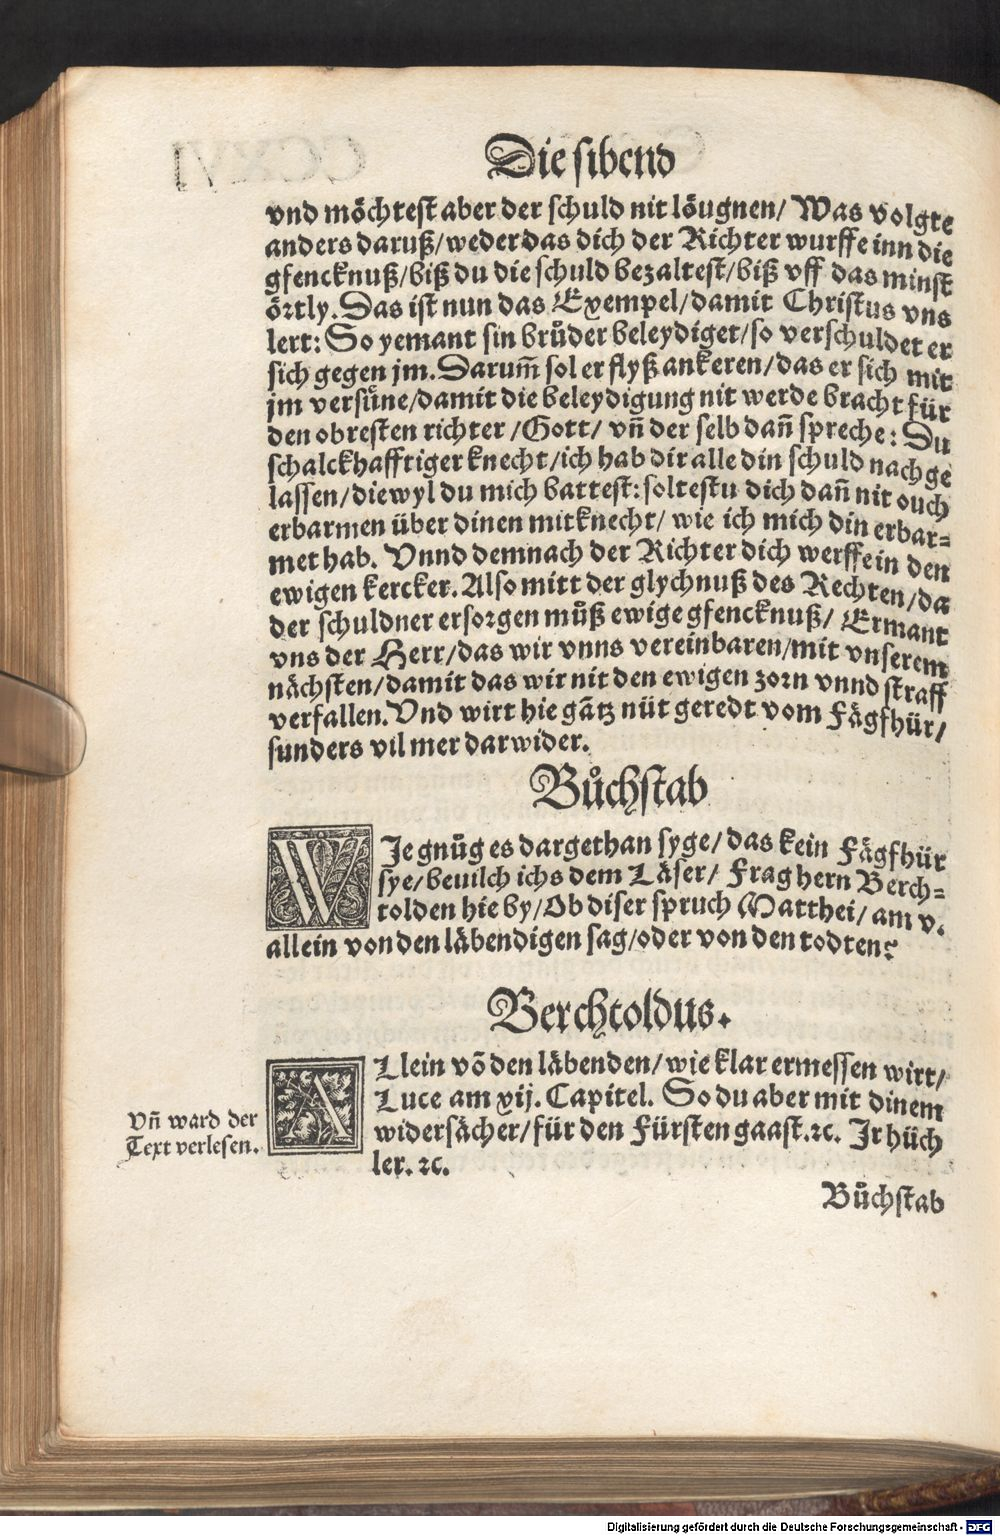 Die sibend
vnd möchtest aber der schuld nit löugnen/ Was volgte
anders daruß/weder das dich der Richter wurffe inn die
gfencknuß/biß du die schuld bezaltest/biß vff das minst
örtly. Das ist nun das Exempel/damit Christus vns
lert: So yemant sin brůder beleydiget/so verschuldet er
sich gegen jm. Darum̄ sol er flyß ankeren/das er sich mit
jm versüne/damit die beleydigung nit werde bracht für
den obresten richter/Gott/ vn̄ der selb dan̄ spreche: Du
schalckhafftiger knecht/ich hab dir alle din schuld nachge
lassen/diewyl du mich battest: soltestu dich dan̄ nit ouch
erbarmen über dinen mitknecht/ wie ich mich din erbar-
met hab. Vnnd demnach der Richter dich werffe in den
ewigen kercker. Also mitt der glychnuß des Rechten/da
der schuldner ersorgen můß ewige gfencknuß/ Ermant
vns der Herr/das wir vnns vereinbaren/mit vnserem
nächsten/damit das wir nit den ewigen zorn vnnd straff
verfallen. Vnd wirt hie gātz nüt geredt vom Fägfhür/
sunders vil mer darwider.
Bůchstab
WJe gnůg es dargethan syge/das kein Fägfhür
sye/beuilch ichs dem Läser/ Frag hern Berch-
tolden hie by/Ob diser spruch Matthei/ am v.
allein von den läbendigen sag/oder von den todten?
Berchtoldus.
ALlein vō den läbenden/wie klar ermessen wirt/
Luce am xij. Capitel. So du aber mit dinem
widersächer/für den Fürsten gaast.ꝛc. Jr hüch
ler. ꝛc.
Vn̄ ward der
Text verlesen.
Bůchstab
Digitalisierung gefördert durch die Deutsche Forschungsgemeinschaft - DFG